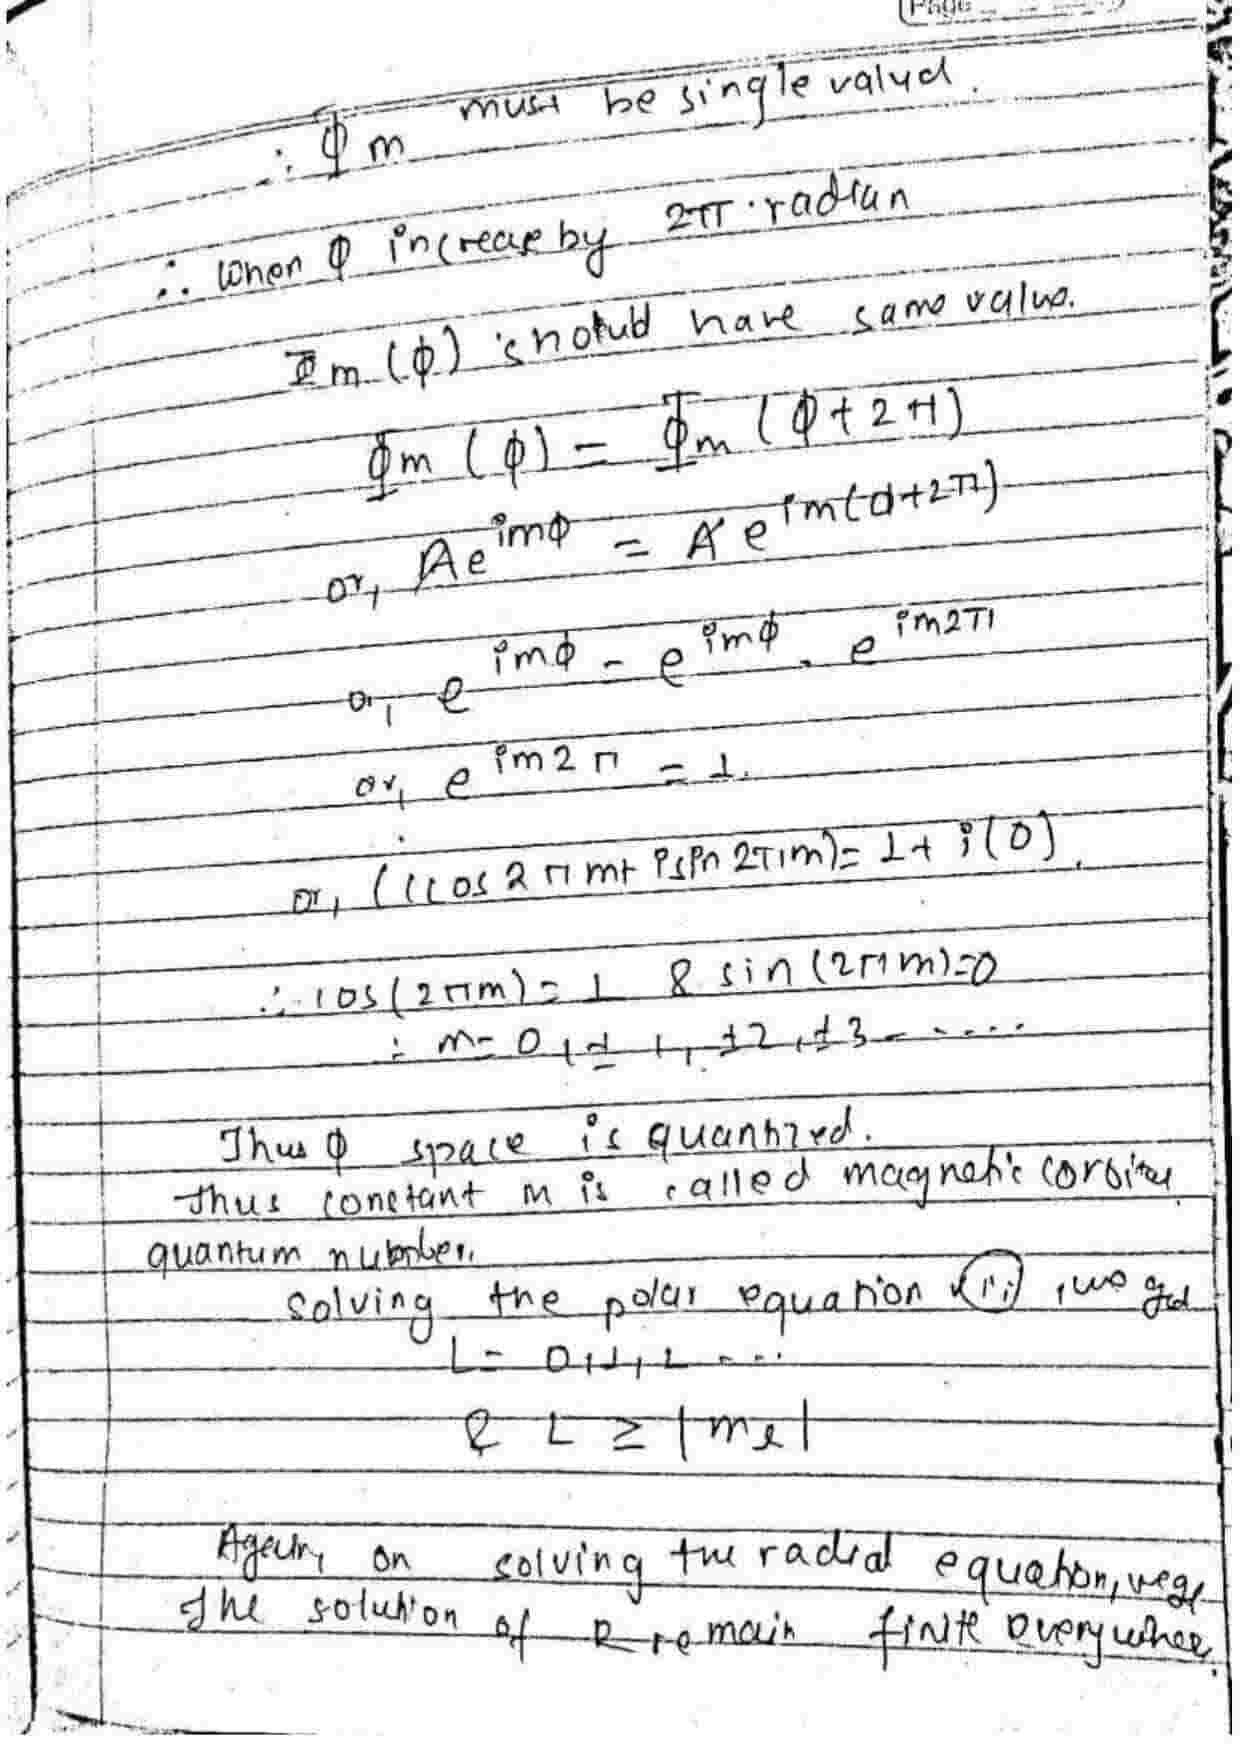 Page
∴ Φm must be single valud.
∴ when φ increase by 2π radian
Φm (φ) shoud have same value.
Φm (φ) = Φm (φ+2π)
or, Ae^imφ = Ae^im(φ+2π)
or, e^imφ = e^imφ . e^im2π
or, e^im2π = 1.
or, ((cos2πm+ isin2πm)= 1+ i(0)
∴ cos(2πm)= 1 & sin(2πm)=0
: m= 0, ± 1, ±2, ±3 - ....
Thus φ space is quantized.
Thus constant m is called magnetic (orbital
quantum number.
solving the polar equation (ii), we get
L= 0,1,2 ...
& L ≥ |mℓ|
Again, on solving the radial equation, we get
The solution of R remain finite everywhere.